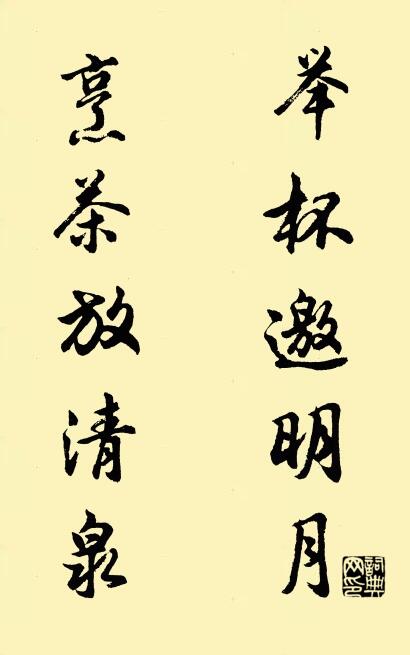 举杯邀明月
烹茶放清泉
词典网印